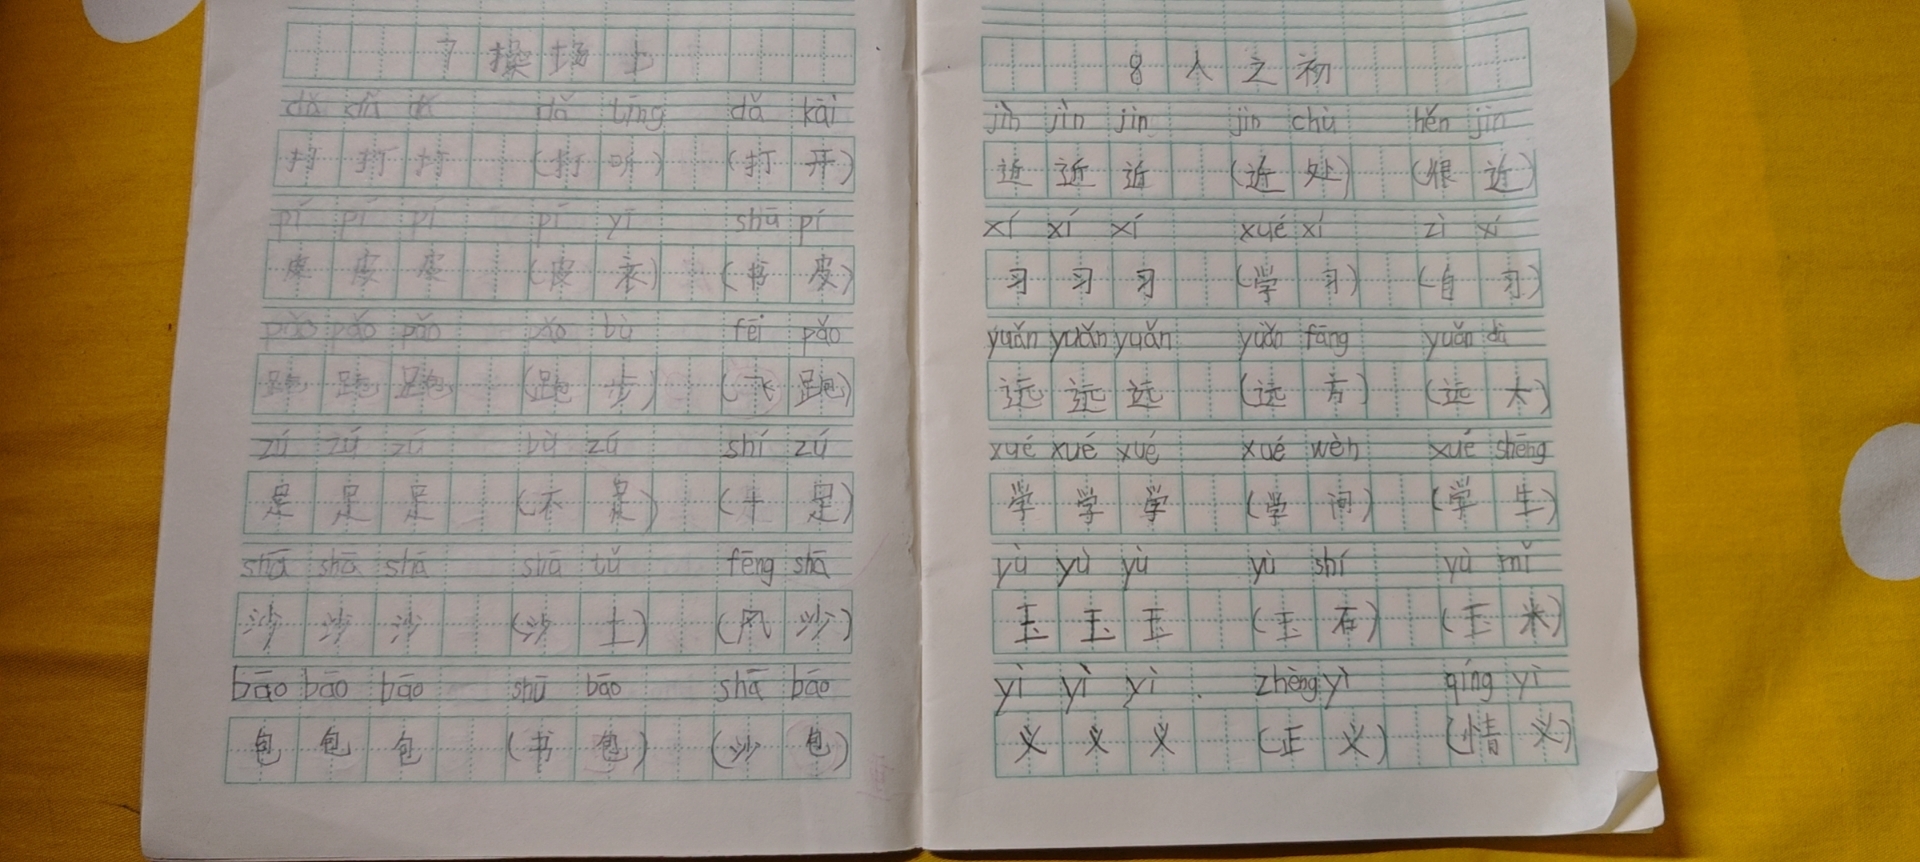 7 操场上
dǎ dǎ dǎ dǎ tīng dǎ kāi
打 打 打 (打 听) (打 开)
pí pí pí pí yī shū pí
皮 皮 皮 (皮 衣) (书 皮)
pǎo pǎo pǎo pǎo bù fēi pǎo
跑 跑 跑 (跑 步) (飞 跑)
zú zú zú bù zú shí zú
足 足 足 (不 足) (十 足)
shā shā shā shā tǔ fēng shā
沙 沙 沙 (沙 土) (风 沙)
bāo bāo bāo shū bāo shā bāo
包 包 包 (书 包) (沙 包)
8 人之初
jìn jìn jìn jìn chù hěn jìn
近 近 近 (近 处) (很 近)
xí xí xí xué xí zì xí
习 习 习 (学 习) (自 习)
yuǎn yuǎn yuǎn yuǎn fāng yuǎn dà
远 远 远 (远 方) (远 大)
xué xué xué xué wèn xué shēng
学 学 学 (学 问) (学 生)
yù yù yù yù shí yù mǐ
玉 玉 玉 (玉 石) (玉 米)
yì yì yì zhèng yì qíng yì
义 义 义 (正 义) (情 义)